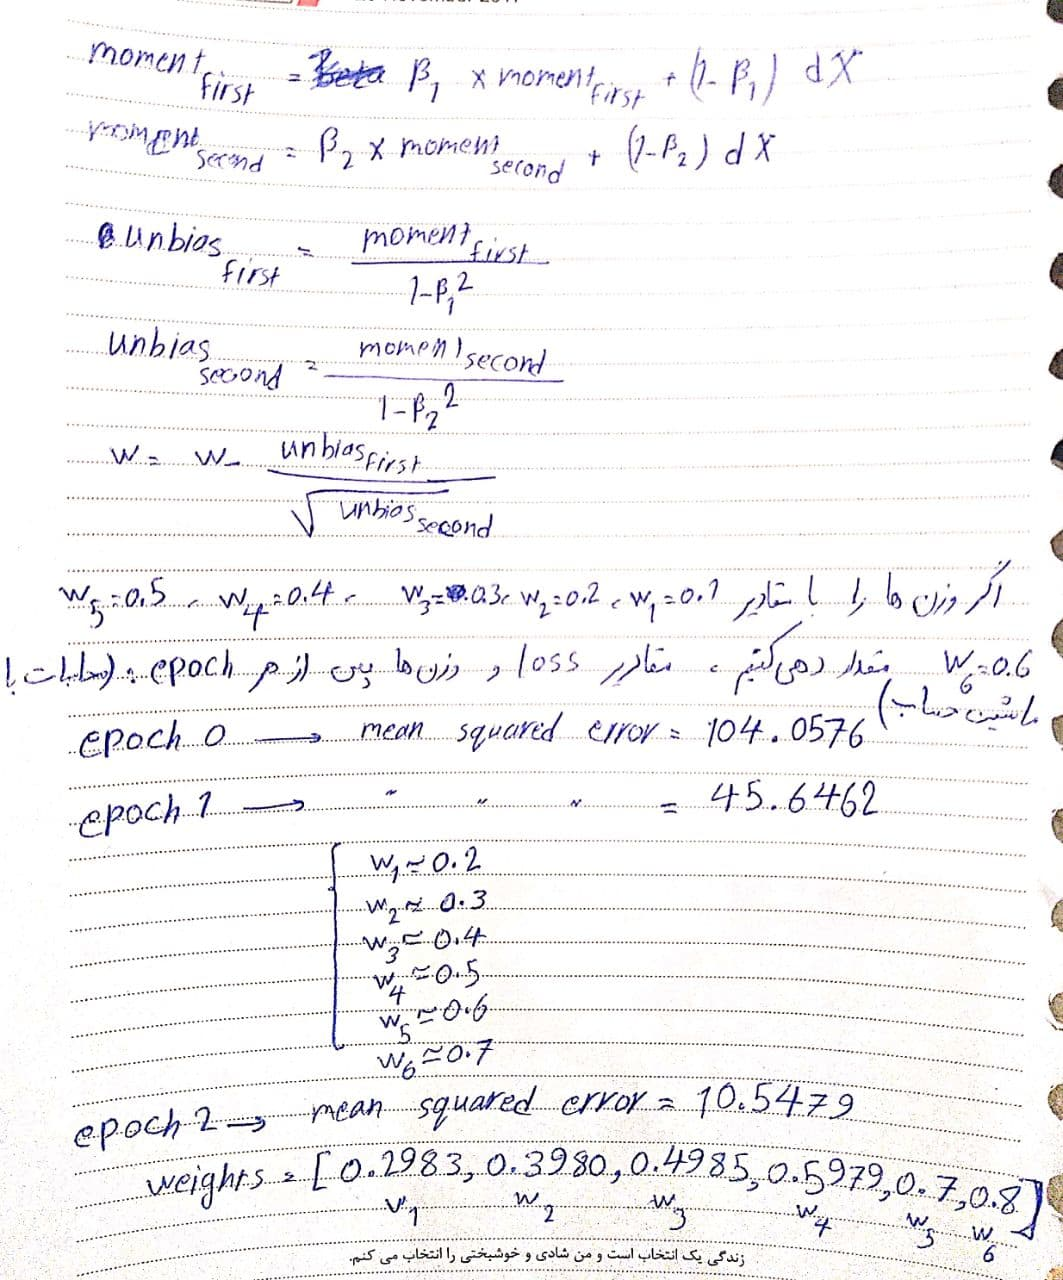 moment first = β₁ x moment first + (1-β₁) dX
moment second = β₂ x moment second + (1-β₂) dX
unbias first = moment first / 1-β₁²
unbias second = moment second / 1-β₂²
w = w - unbias first / √unbias second
اگر وزن ها را با مقادیر w₁=0.1 ، w₂=0.2 ، w₃=0.3 ، w₄=0.4 ، w₅=0.5
w₆=0.6 مقدار دهی کنیم ، مقادیر loss و وزن ها پس از هر epoch : (محاسبات با
ماشین حساب)
epoch 0 → mean squared error = 104.0576
epoch 1 → " " " = 45.6462
w₁≈0.2
w₂≈0.3
w₃≈0.4
w₄≈0.5
w₅≈0.6
w₆≈0.7
epoch 2 → mean squared error = 10.5479
weights = [0.2983, 0.3980, 0.4985, 0.5979, 0.7, 0.8]
w₁ w₂ w₃ w₄ w₅ w₆
زندگی یک انتخاب است و من شادی و خوشبختی را انتخاب می کنم.